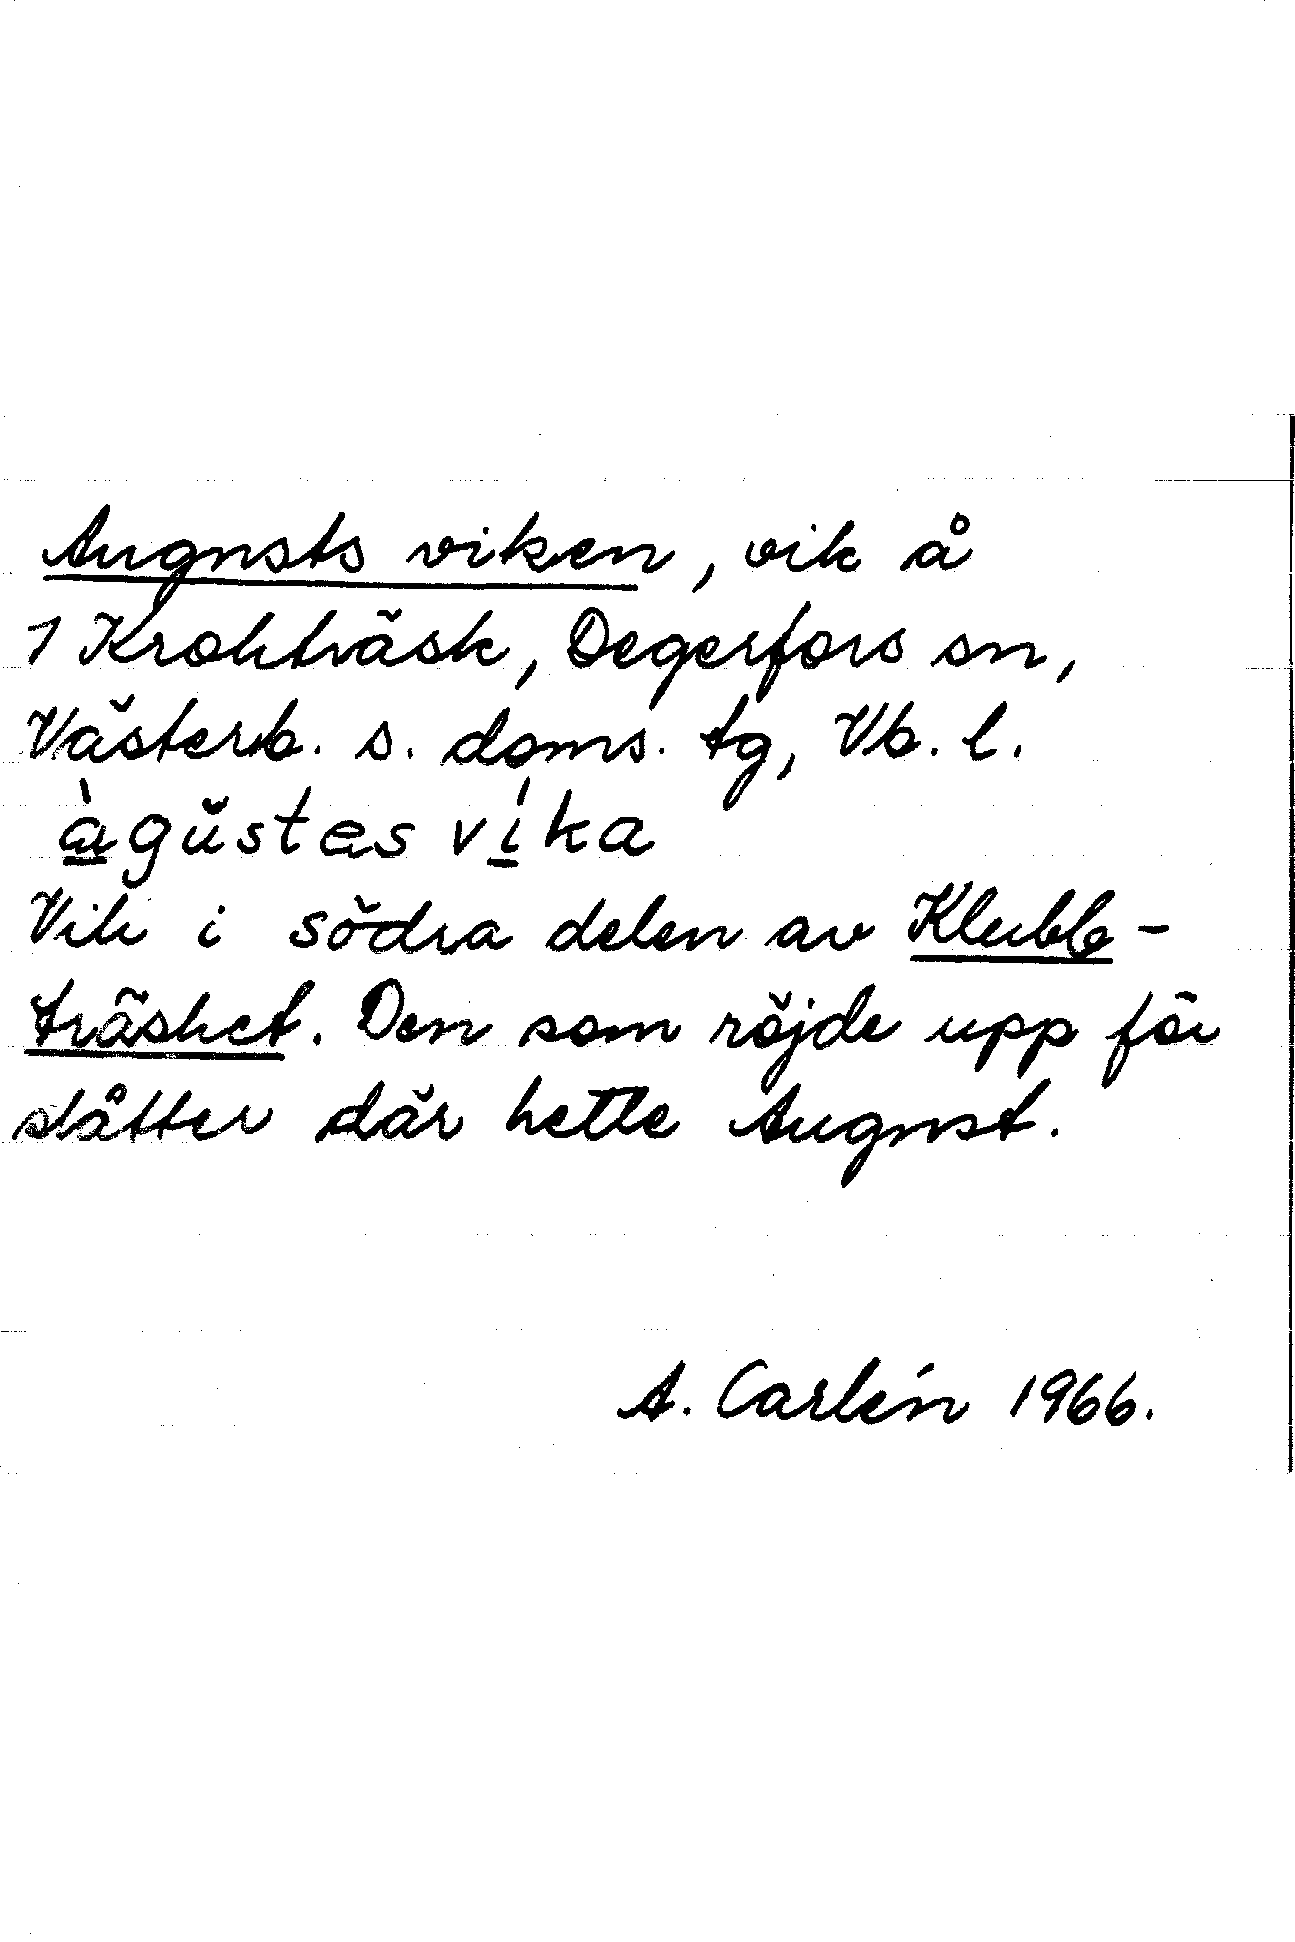 Augusts viken, vik å
1 Krokträsk, Degerfors sn,
Västerb. s. doms. tg, Vb. l.
àgŭstes víka
Vik i södra delen av Klubb-
träsket. Den som röjde upp för
slåtter där hette August.
A. Carlén 1966.